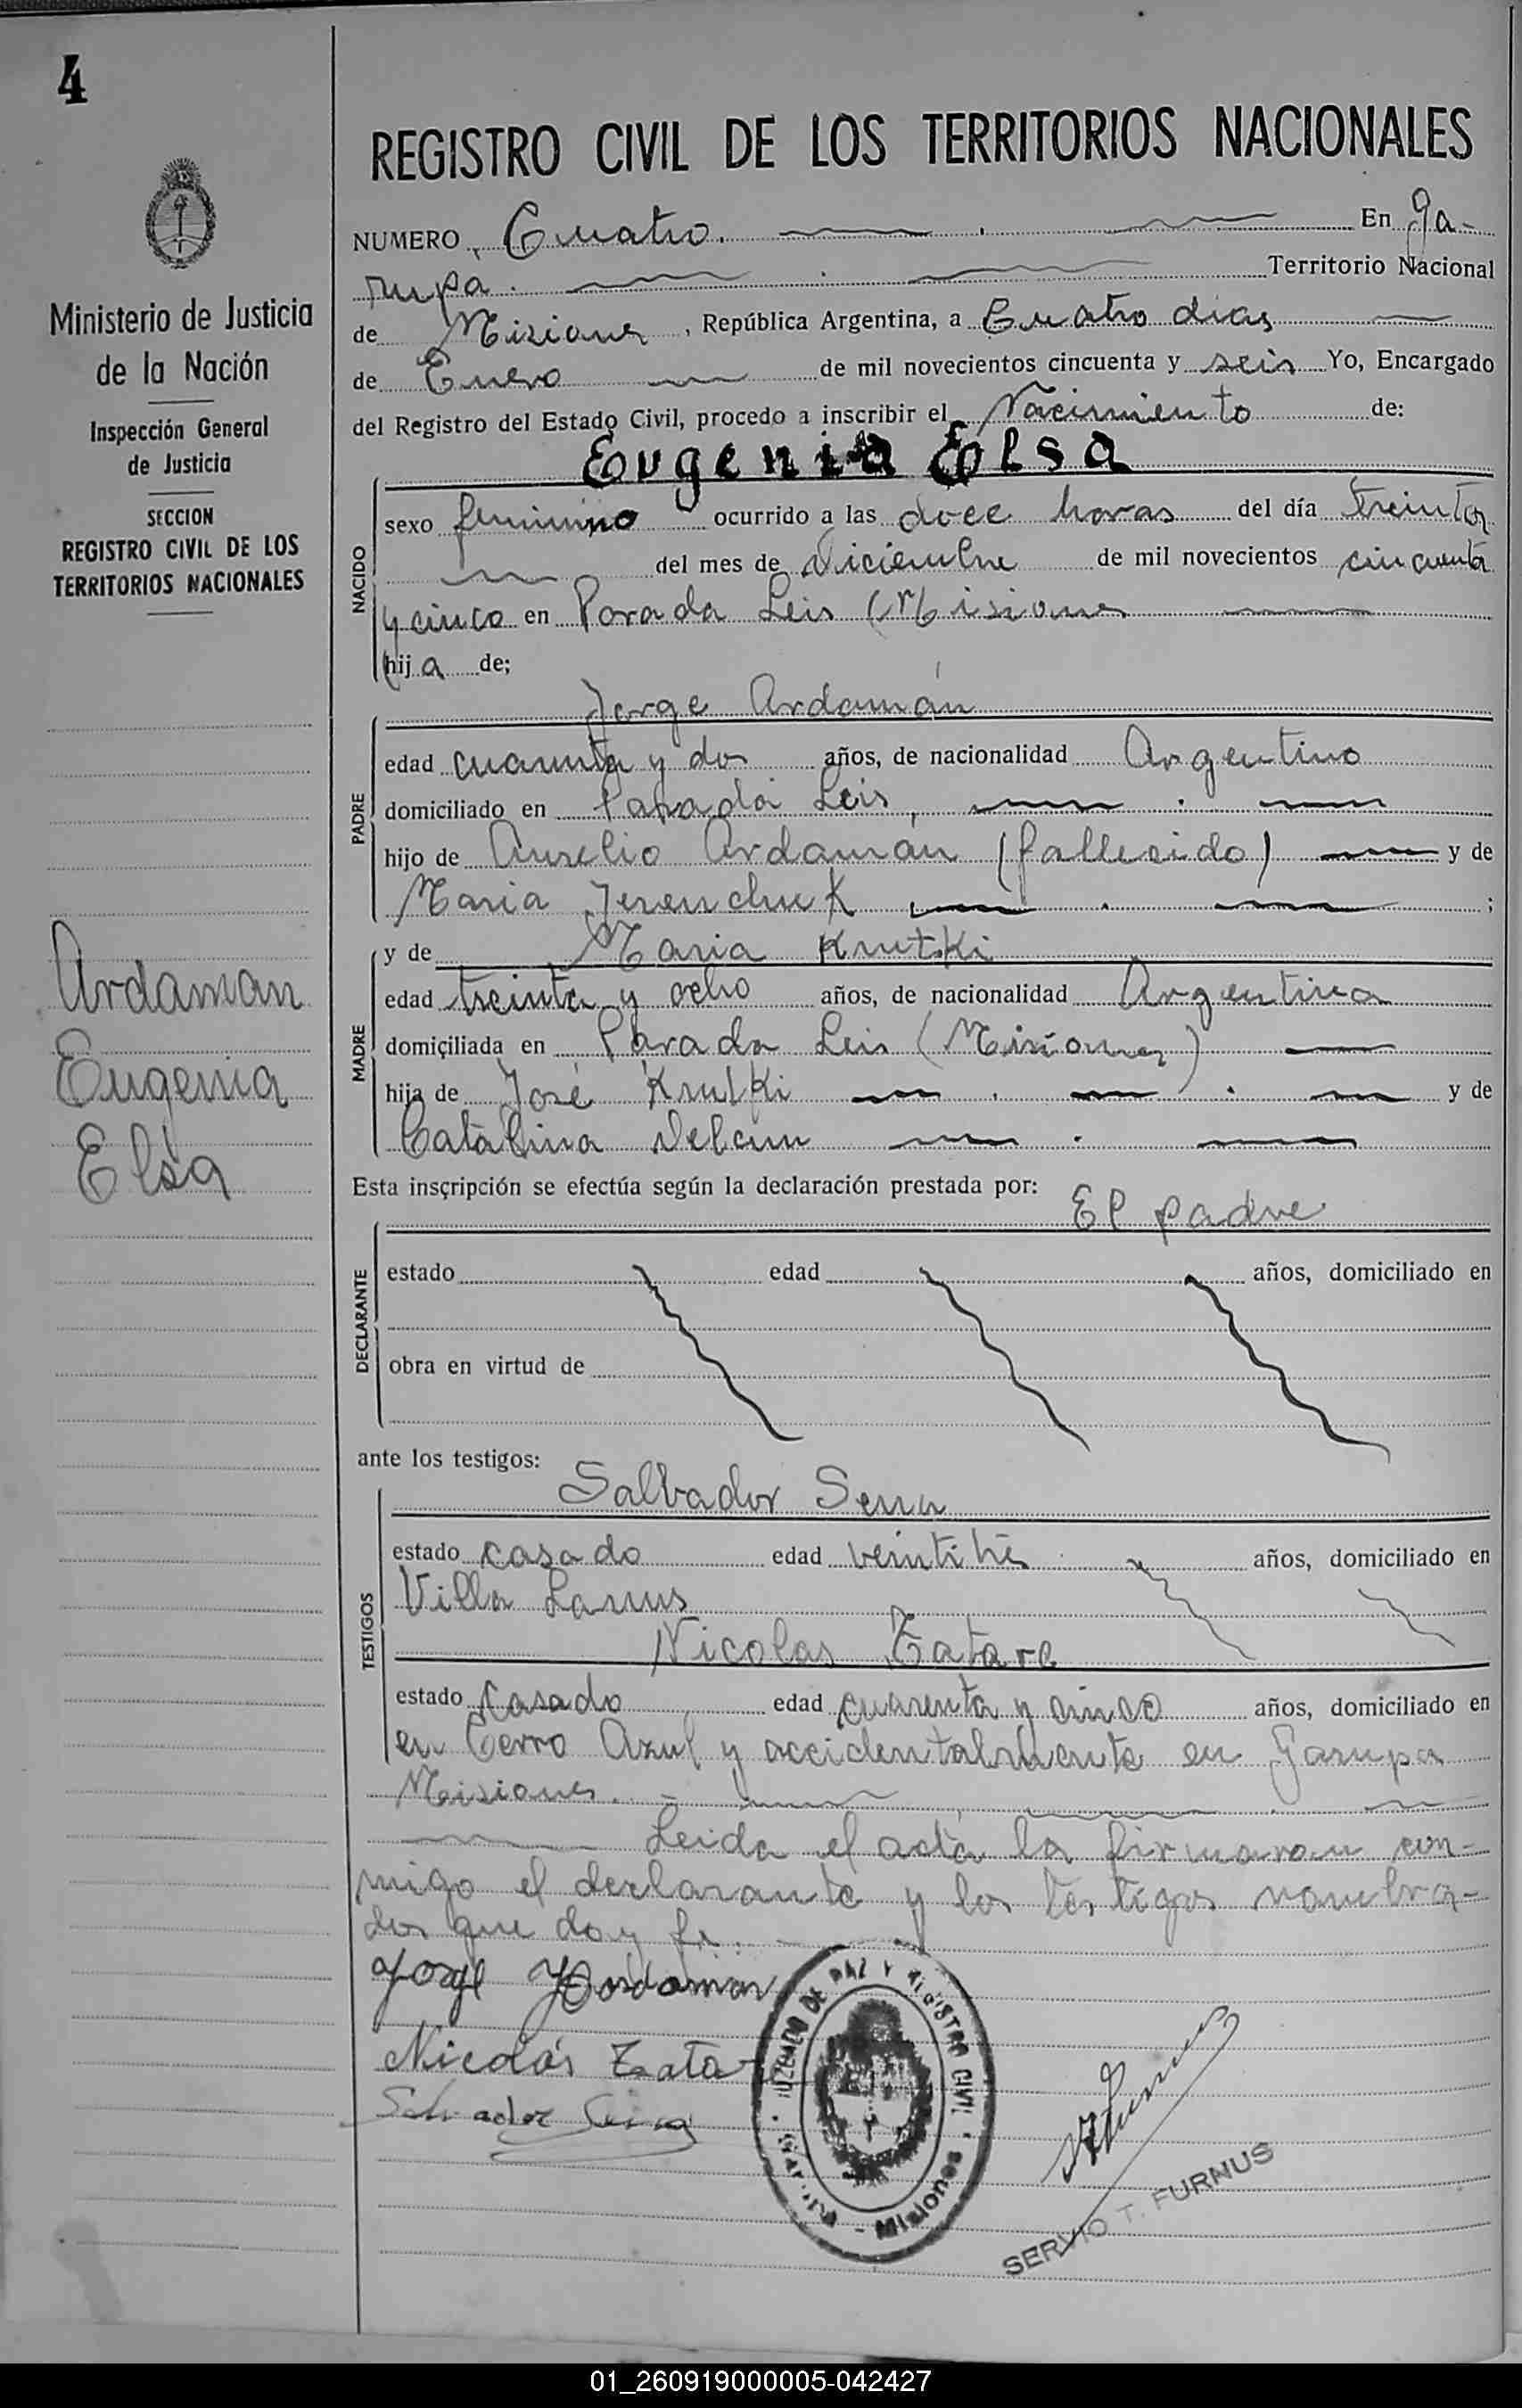 4
Ministerio de Justicia
de la Nación
Inspección General
de Justicia
SECCION
REGISTRO CIVIL DE LOS
TERRITORIOS NACIONALES
Ardaman
Eugenia
Elsa
REGISTRO CIVIL DE LOS TERRITORIOS NACIONALES
NUMERO Cuatro. En Ga-
rupa. Territorio Nacional
de Misiones, República Argentina, a Cuatro dias
de Enero de mil novecientos cincuenta y seis Yo, Encargado
del Registro del Estado Civil, procedo a inscribir el Nacimiento de:
Eugenia Elsa
NACIDO
sexo feminino ocurrido a las doce horas del día treinta
del mes de Diciembre de mil novecientos cincuenta
y cinco en Parada Leis (Misiones
hija de;
Jorge Ardamán
PADRE
edad cuarenta y dos años, de nacionalidad Argentino
domiciliado en Parada Leis,
hijo de Aurelio Ardamán (fallecido) y de
Maria Jerenchuk ;
y de Maria Krutki
MADRE
edad treinta y ocho años, de nacionalidad Argentina
domiciliada en Parada Leis (Misiones)
hija de José Krutki y de
Catalina
Esta inscripción se efectúa según la declaración prestada por: El padre
DECLARANTE
estado edad años, domiciliado en
obra en virtud de
ante los testigos:
Salbador Serra
TESTIGOS
estado casado edad veintitrés años, domiciliado en
Villa Lanus
Nicolas Tatare
estado Casado edad cuarenta y cinco años, domiciliado en
en Cerro Azul y accidentalmente en Garupa
Misiones.
Leida el acta la firmaron con-
migo el declarante y los testigos nombra-
dos que doy fe.
Jorge Hardaman
Nicolás Tata
Salvador Serra
JUZGADO DE PAZ Y REGISTRO CIVIL
- Misiones
SERVIO T. FURNUS
01_260919000005-042427